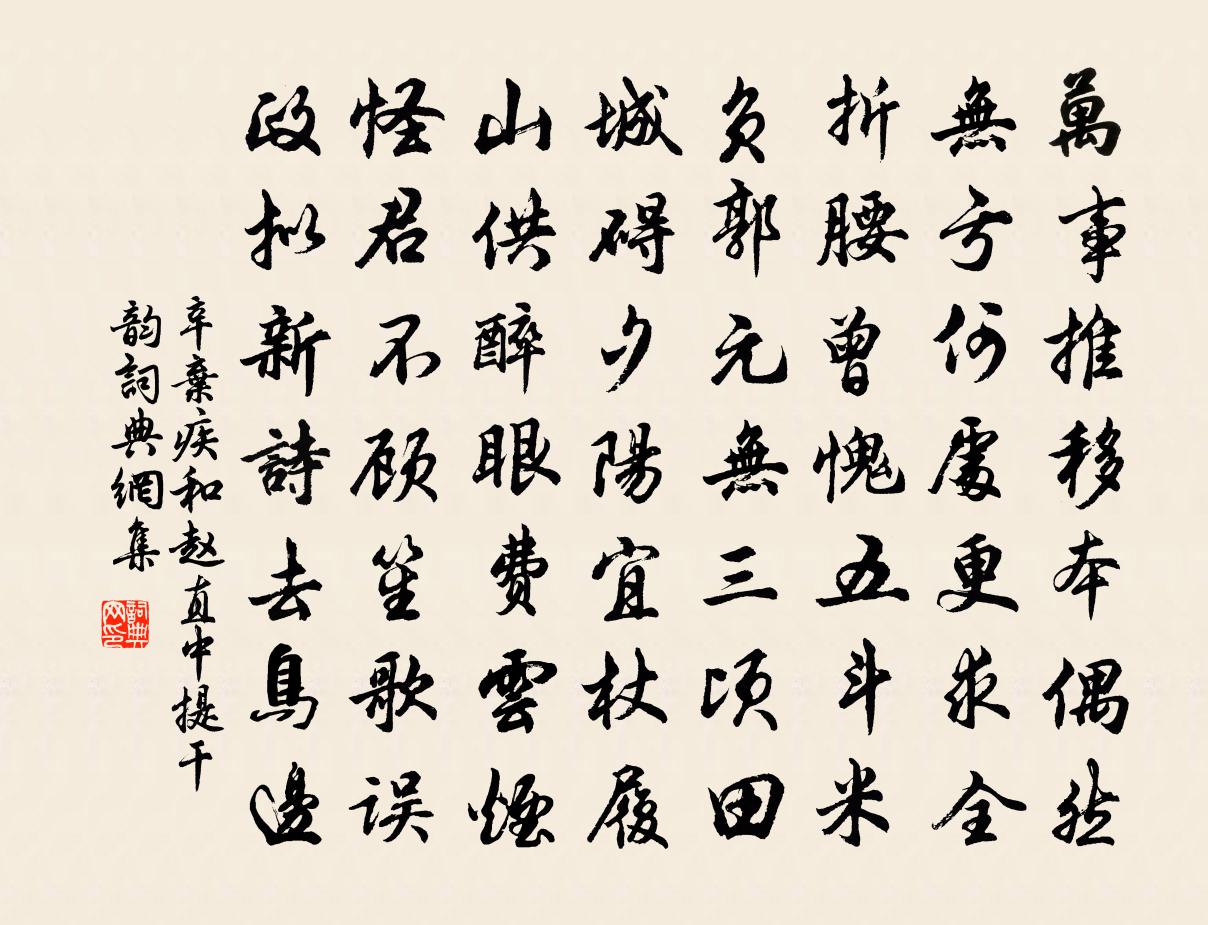 萬事推移本偶然
無亏何處更求全
折腰曾愧五斗米
负郭元無三顷田
城碍夕陽宜杖履
山供醉眼費雲煙
怪君不顾笙歌误
政拟新詩去鳥邊
辛棄疾和赵直中提干
韵詞典網集
詞典
网印